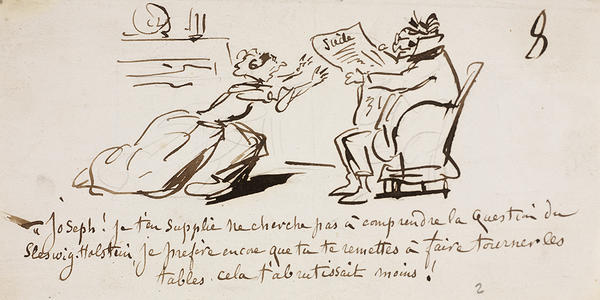 8
« Joseph ! je t'en supplie ne cherche pas à comprendre la question du
Sleswig-Holstein, je préfère encore que tu te remettes à faire tourner les
tables cela t'abrutissait moins !
2